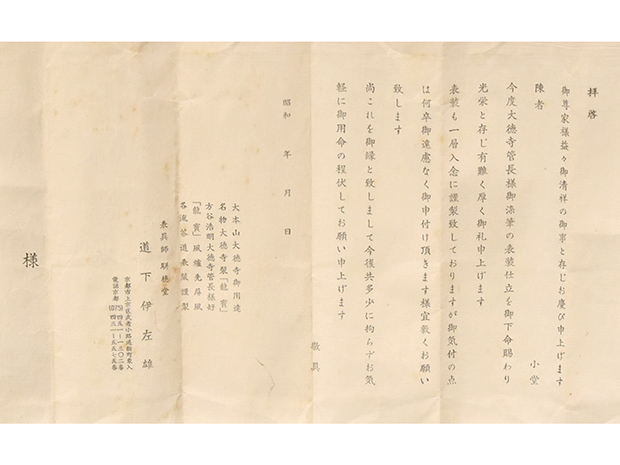 拝啓
御尊家様益々御清祥の御事と存じお慶び申上げます
陳者 小堂
今度大徳寺管長様御染筆の表装仕立を御下命賜わり
光栄と存じ有難く厚く御礼申上げます
表装も一層入念に謹製致しておりますが御気付の点
は何卒御遠慮なく御申付け頂きます様宜敷くお願い
致します
尚これを御縁と致しまして今後共多少に拘らずお気
軽に御用命の程伏してお願い申上げます
敬具
昭和 年 月 日
大本山大徳寺御用達
名物大徳寺裂「龍寳」
方谷浩明大徳寺管長様好
「龍寳」風爐先屏風
各流茶道表装謹製
表具師
道下伊左雄
京都市上京区武者小路通
電話京都(075)
様